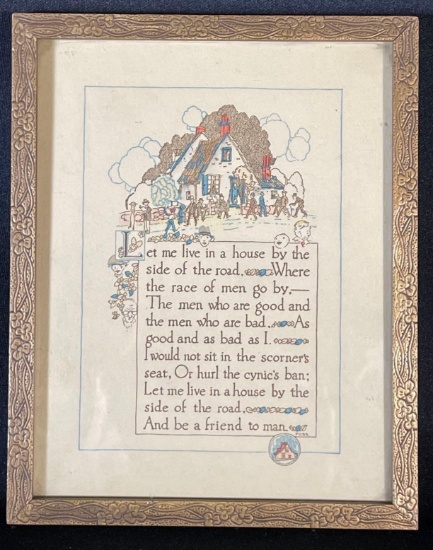 Let me live in a house by the
side of the road, Where
the race of men go by.—
The men who are good and
the men who are bad. As
good and as bad as I.
I would not sit in the scorner's
seat, Or hurl the cynic's ban;
Let me live in a house by the
side of the road,
And be a friend to man.